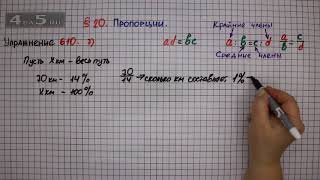 4 из 5
§ 20. Пропорции.
Упражнение 610. 2)
Крайние члены
ad = bc
a : b = c : d
a/b = c/d
Средние члены
Пусть X км - весь путь
70 км - 14%
X км - 100%
70/14 → сколько км составляет 1%